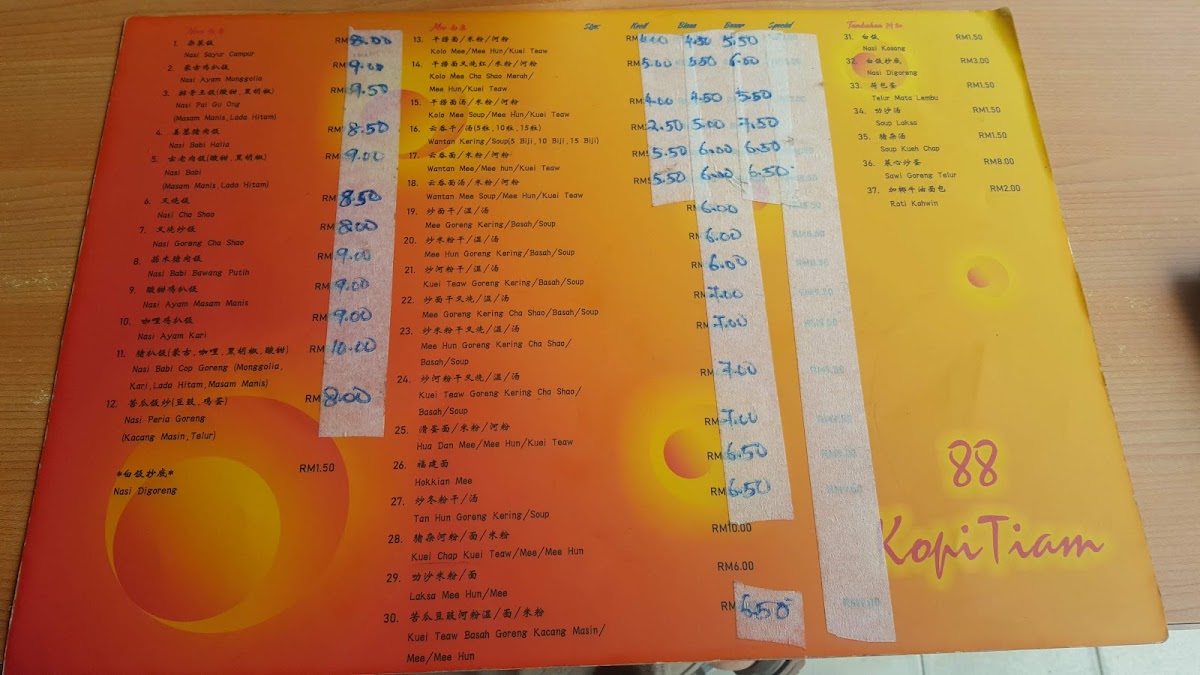 1. 杂菜饭 RM8.00
Nasi Sayur Campur
2. 蒙古鸡扒饭 RM9.00
Nasi Ayam Monggolia
3. 排骨王饭(酸甜,黑胡椒) RM9.50
Nasi Pai Gu Ong
(Masam Manis,Lada Hitam)
4. 姜葱猪肉饭 RM8.50
Nasi Babi Halia
5. 古老肉饭(酸甜,黑胡椒) RM9.00
Nasi Babi
(Masam Manis,Lada Hitam)
6. 叉烧饭 RM8.50
Nasi Cha Shao
7. 叉烧炒饭 RM8.00
Nasi Goreng Cha Shao
8. 蒜米猪肉饭 RM9.00
Nasi Babi Bawang Putih
9. 酸甜鸡扒饭 RM9.00
Nasi Ayam Masam Manis
10. 咖哩鸡扒饭 RM9.00
Nasi Ayam Kari
11. 猪扒饭(蒙古,咖哩,黑胡椒,酸甜) RM10.00
Nasi Babi Cop Goreng (Monggolia,
Kari,Lada Hitam,Masam Manis)
12. 苦瓜饭炒(豆豉,鸡蛋) RM8.00
Nasi Peria Goreng
(Kacang Masin,Telur)
*白饭炒底* RM1.50
Nasi Digoreng
Size: Kecil Biasa Besar Special
13. 干捞面/米粉/河粉 RM4.00 4.50 5.50
Kolo Mee/Mee Hun/Kuei Teaw
14. 干捞面叉烧红/米粉/河粉 RM5.00 5.50 6.00
Kolo Mee Cha Shao Merah/
Mee Hun/Kuei Teaw
15. 干捞面汤/米粉/河粉 RM4.00 4.50 5.50
Kolo Mee Soup/Mee Hun/Kuei Teaw
16. 云吞干/汤(5粒,10粒,15粒) RM2.50 5.00 7.50
Wantan Kering/Soup(5 Biji,10 Biji,15 Biji)
17. 云吞面/米粉/河粉 RM5.50 6.00 6.50
Wantan Mee/Mee hun/Kuei Teaw
18. 云吞面汤/米粉/河粉 RM5.50 6.00 6.50
Wantan Mee Soup/Mee Hun/Kuei Teaw
19. 炒面干/湿/汤 RM6.00
Mee Goreng Kering/Basah/Soup
20. 炒米粉干/湿/汤 RM6.00
Mee Hun Goreng Kering/Basah/Soup
21. 炒河粉干/湿/汤 RM6.00
Kuei Teaw Goreng Kering/Basah/Soup
22. 炒面干叉烧/湿/汤 RM7.00
Mee Goreng Kering Cha Shao/Basah/Soup
23. 炒米粉干叉烧/湿/汤 RM7.00
Mee Hun Goreng Kering Cha Shao/
Basah/Soup
24. 炒河粉干叉烧/湿/汤 RM7.00
Kuei Teaw Goreng Kering Cha Shao/
Basah/Soup
25. 滑蛋面/米粉/河粉 RM7.00
Hua Dan Mee/Mee Hun/Kuei Teaw
26. 福建面 RM6.50
Hokkian Mee
27. 炒冬粉干/汤 RM6.50
Tan Hun Goreng Kering/Soup
28. 猪杂河粉/面/米粉 RM10.00
Kuei Chap Kuei Teaw/Mee/Mee Hun
29. 叻沙米粉/面 RM6.00
Laksa Mee Hun/Mee
30. 苦瓜豆豉河粉湿/面/米粉 RM6.50
Kuei Teaw Basah Goreng Kacang Masin/
Mee/Mee Hun
31. 白饭 RM1.50
Nasi Kosong
32. 白饭炒底 RM3.00
Nasi Digoreng
33. 荷包蛋 RM1.50
Telur Mata Lembu
34. 叻沙汤 RM1.50
Soup Laksa
35. 猪杂汤 RM1.50
Soup Kueh Chap
36. 菜心炒蛋 RM8.00
Sawi Goreng Telur
37. 加椰牛油面包 RM2.00
Roti Kahwin
88
KopiTiam